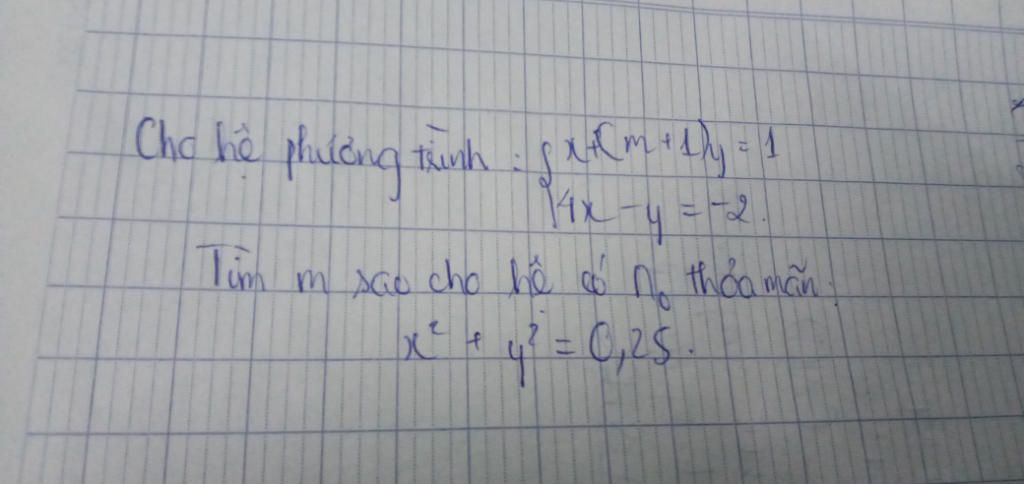 Cho hệ phương trình : { x + (m + 1)y = 1
4x - y = -2.
Tìm m sao cho hệ có n₀ thỏa mãn:
x² + y² = 0,25.